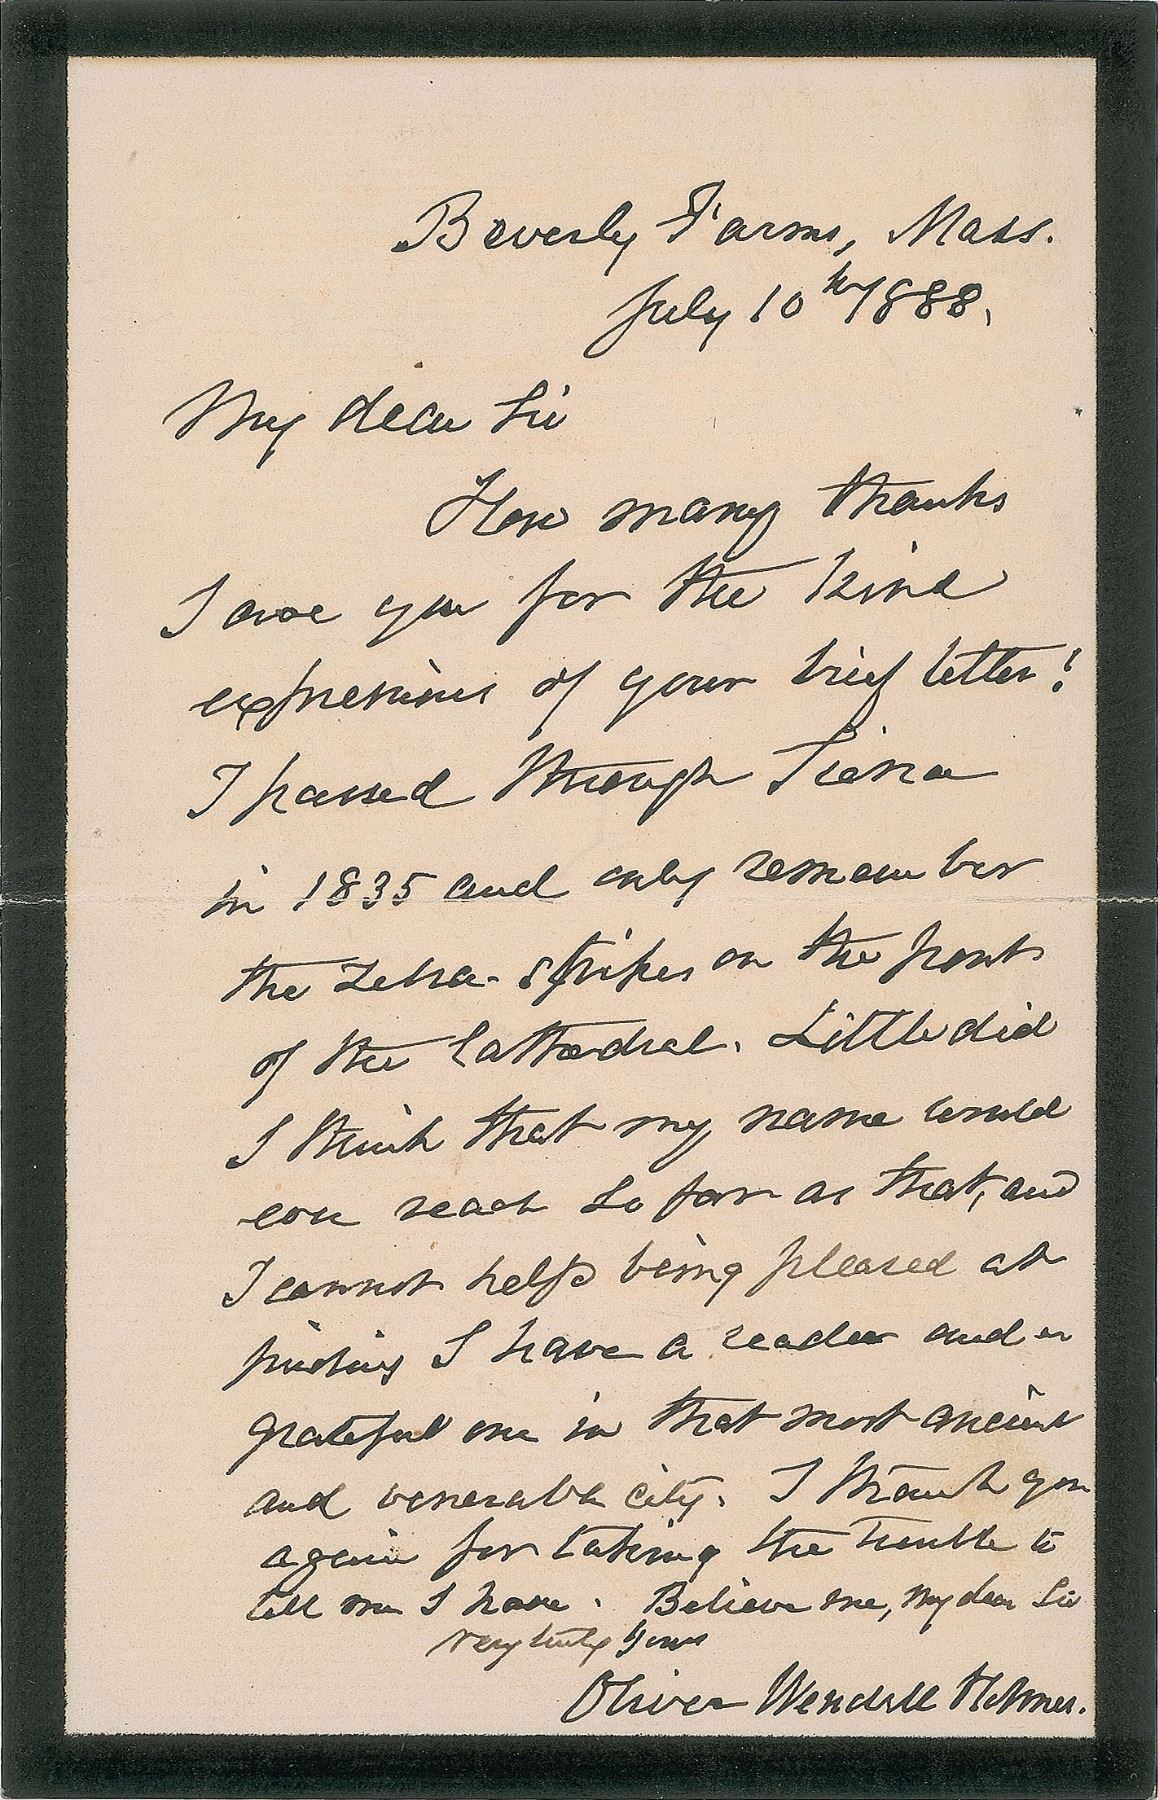 Beverly Farms, Mass.
July 10th 1888.
My dear Sir
How many thanks
I owe you for the kind
expressions of your brief letter!
I passed through Siena
in 1835 and only remember
the Zebra-stripes on the front
of the Cathedral. Little did
I think that my name would
ever reach so far as that, and
I cannot help being pleased at
finding I have a reader and a
grateful one in that most ancient
and venerable city. I thank you
again for taking the trouble to
tell me I have. Believe me, my dear Sir
Very truly Yours
Oliver Wendell Holmes.